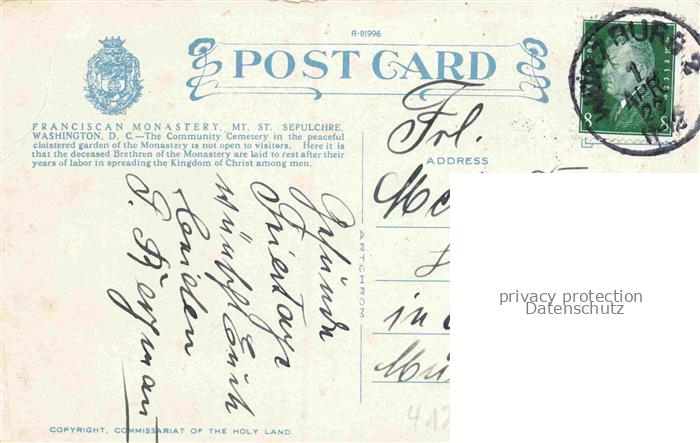 R-81996
POST CARD
FRANCISCAN MONASTERY, MT. ST. SEPULCHRE,
WASHINGTON, D. C.—The Community Cemetery in the peaceful
cloistered garden of the Monastery is not open to visitors. Here it is
that the deceased Brethren of the Monastery are laid to rest after their
years of labor in spreading the Kingdom of Christ among men.
ADDRESS
Frl.
in
ARTCHROM
Gesunde
Feiertage
wünscht Euch
beiden
COPYRIGHT, COMMISSARIAT OF THE HOLY LAND.
8 8
privacy protection
Datenschutz